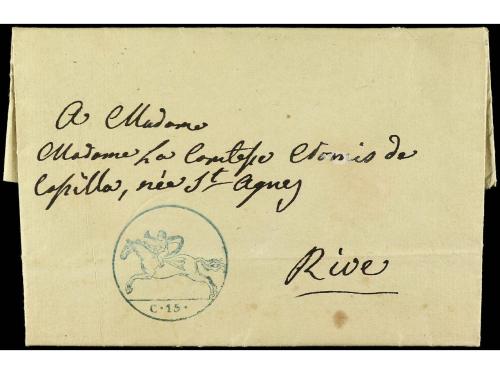 A Madame
Madame La Comtesse de
Capilla, née St Agnes
Rive
C·15·